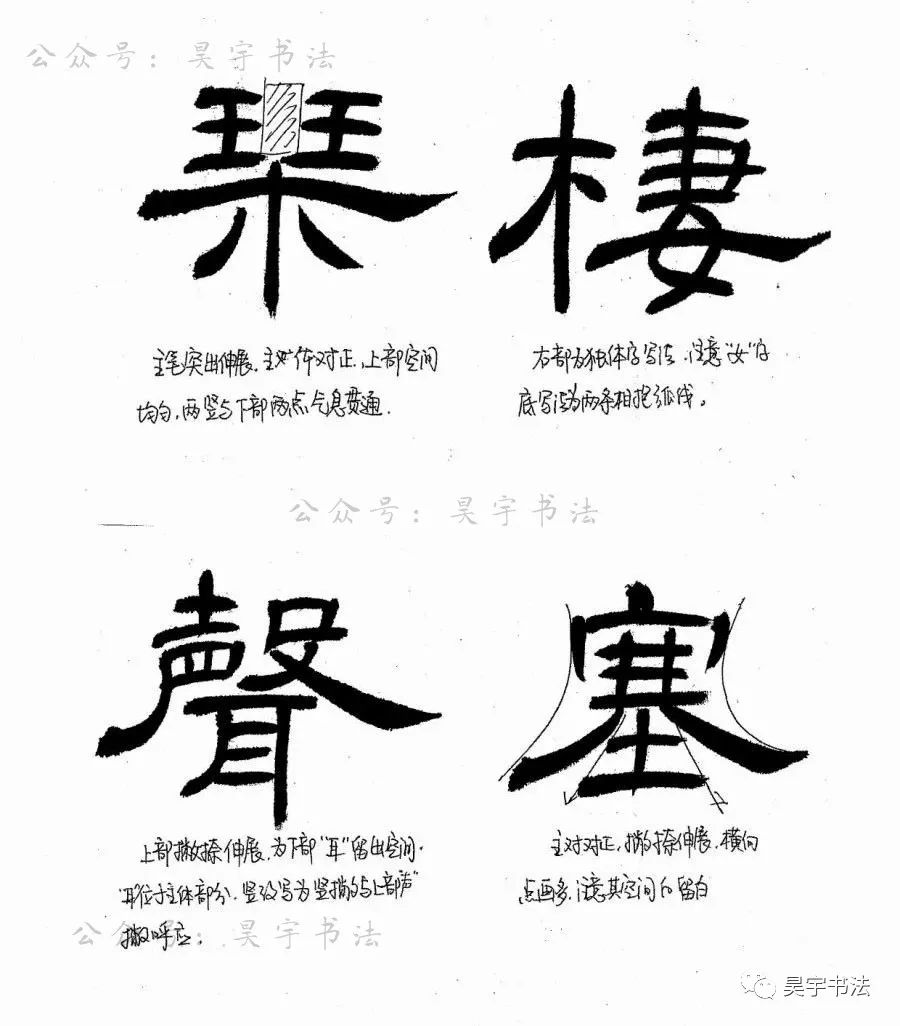 公众号：昊宇书法
琹 棲
主笔突出伸展，主体对正，上部空间
均匀，两竖与下部两点气息贯通．
右部为独体字写法，注意“女”字
底写法为两条相抱弧线。
公众号：昊宇书法
聲 塞
上部撇捺伸展，为下部“耳”留出空间．
“耳”位于主体部分，竖写为竖撇与上部“声”
撇呼应．
对正，撇捺伸展，横向
点画多，注意其空间的留白
公众号：昊宇书法
昊宇书法